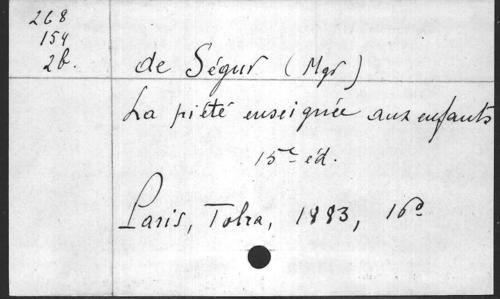 268
154
2b.
de Ségur (Mgr)
La piété enseignée aux enfants
15e éd.
Paris, Tolra, 1883, 16°